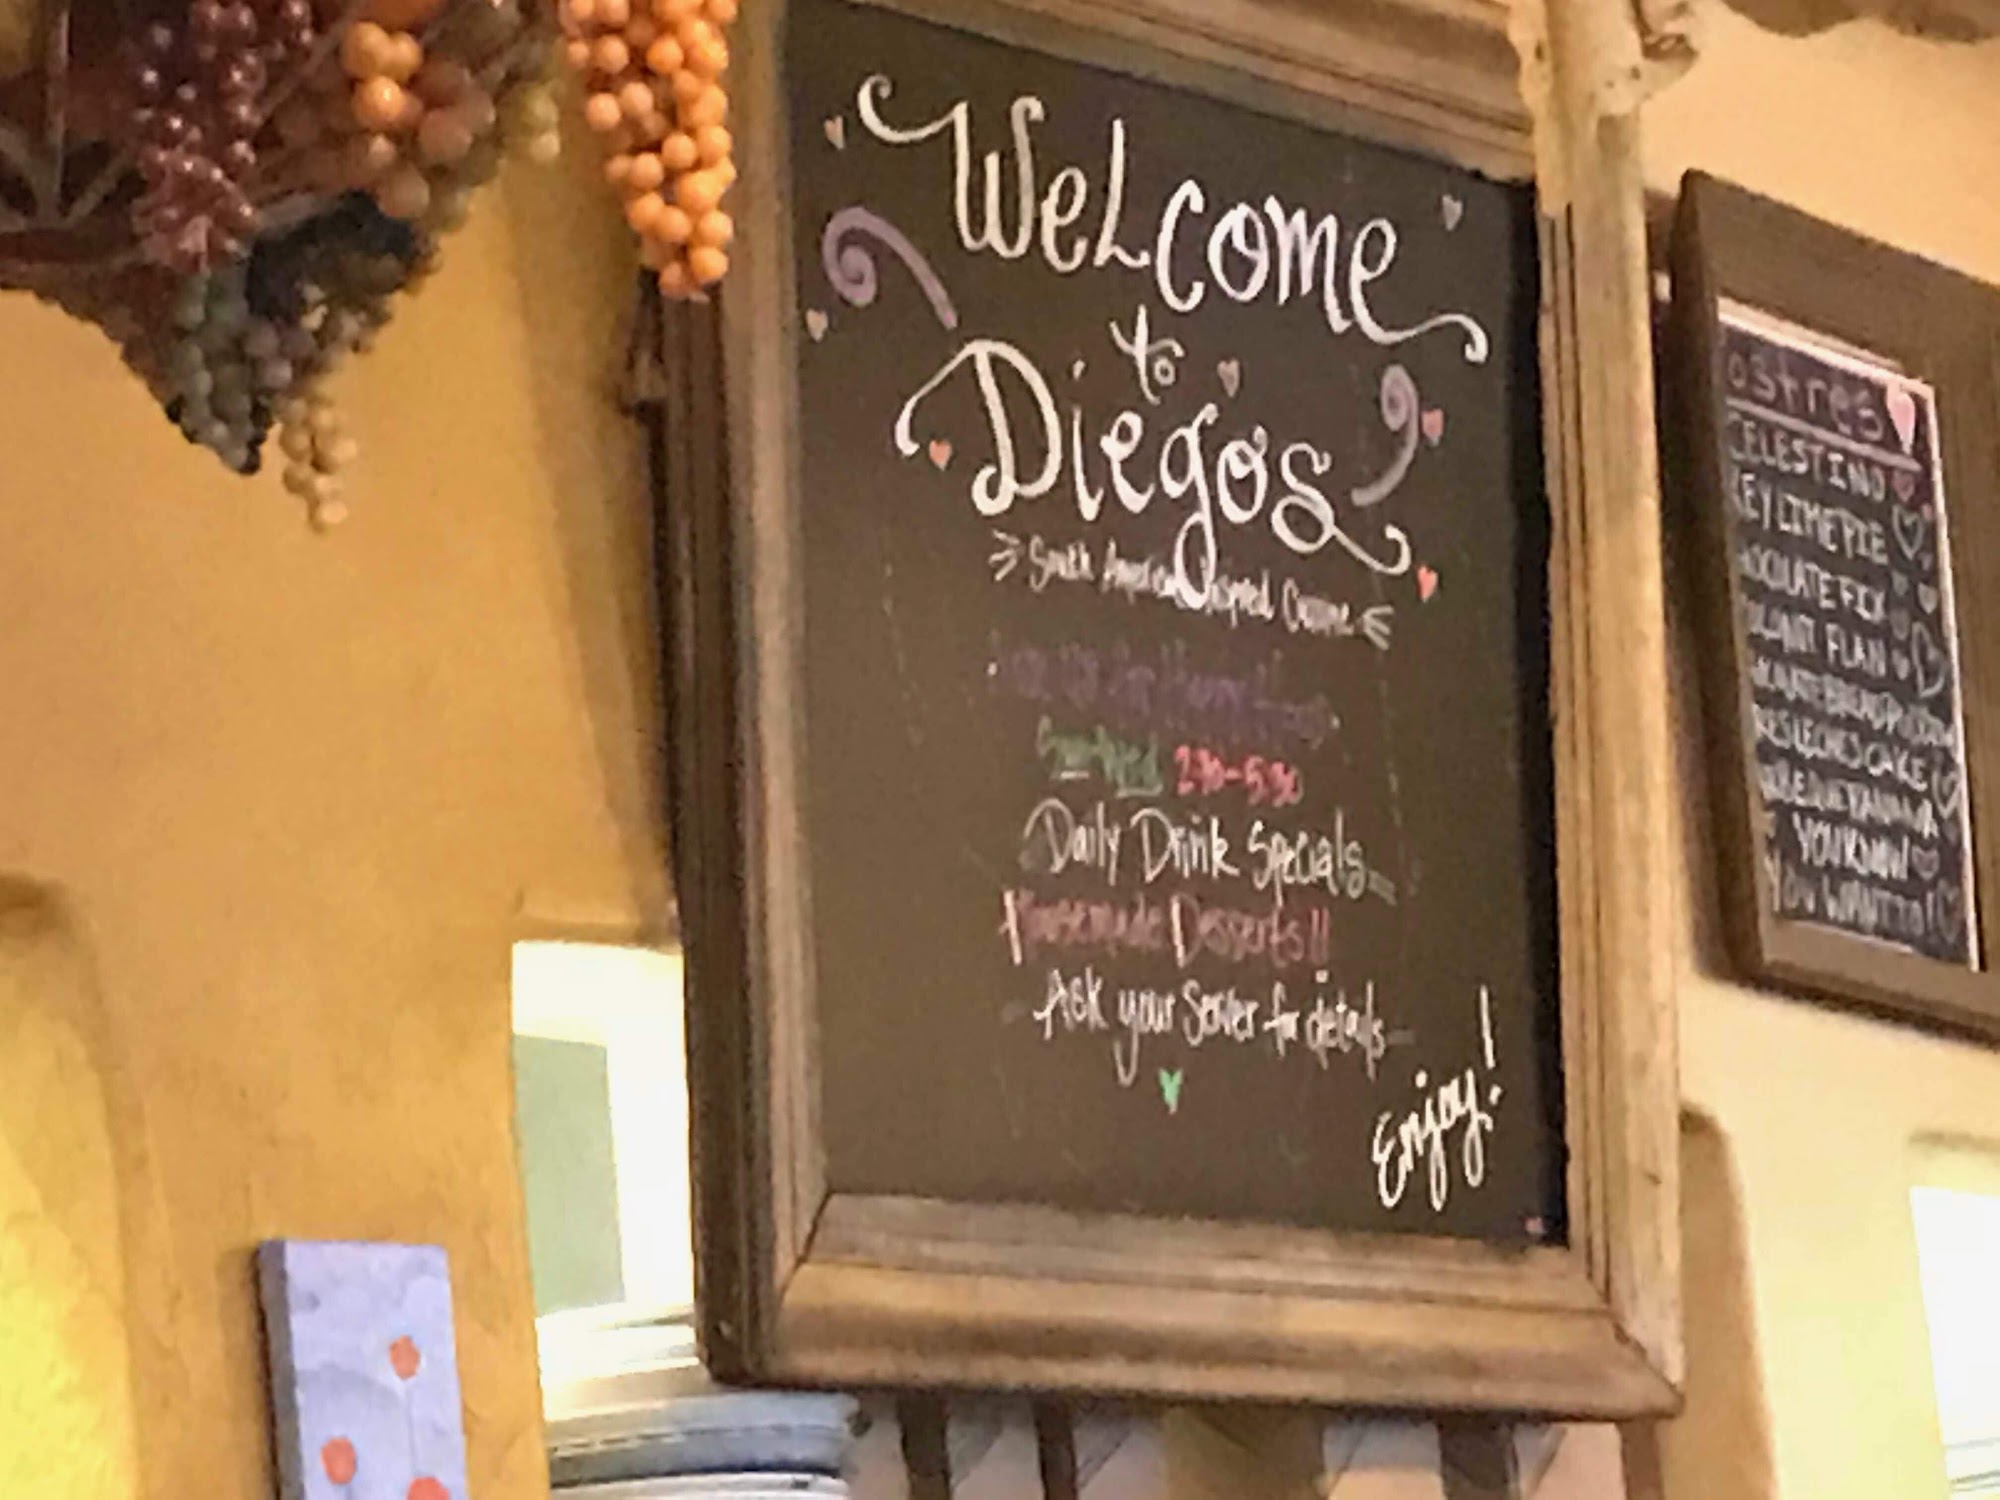 WeLcome
to
Diegos
South American Inspired Cuisine
2:30-5:30
Daily Drink Specials
Housemade Desserts!!
Ask your Server for details
Enjoy!
ostres
CELESTINO
KEY LIME PIE
CHOCOLATE FIX
FLAN
BREAD PUDDING
TRES LECHES CAKE
YOU KNOW
YOU WANT TO!